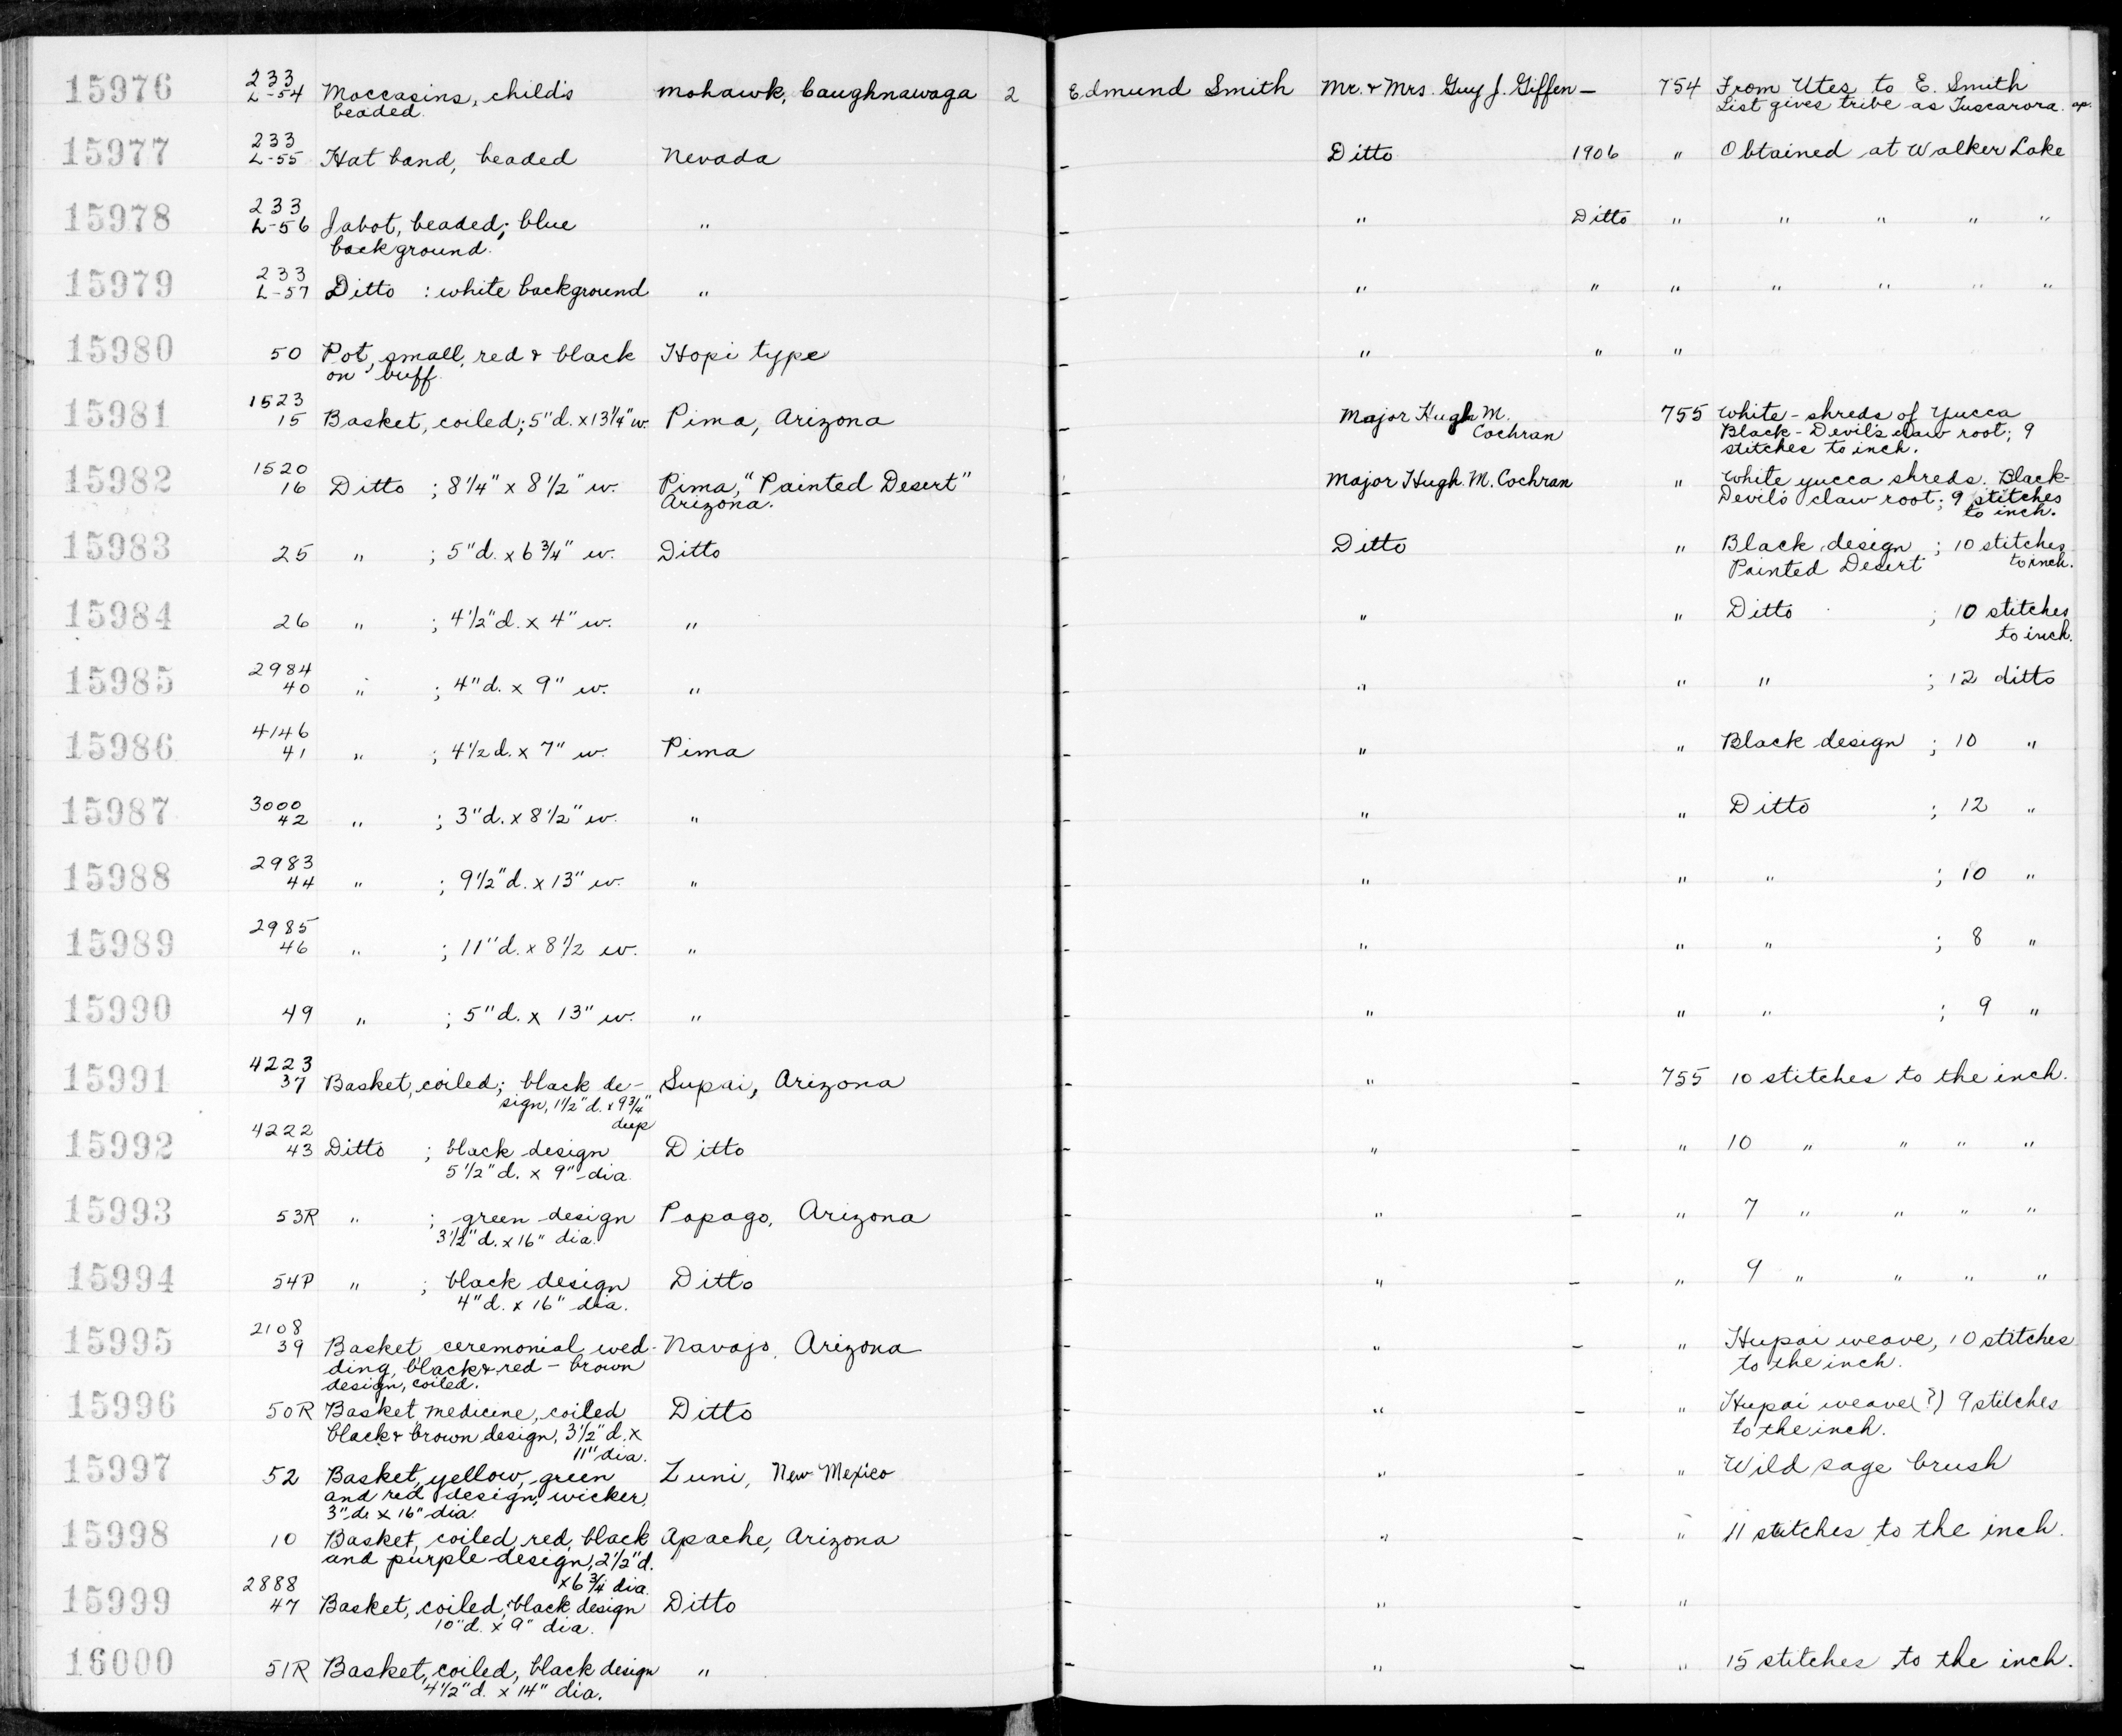 15976 233 L-54 Moccasins, child's mohawk, Caughnawaga 2 Edmund Smith Mr. & Mrs. Guy J. Giffen — 754 From Utes to E. Smith
beaded. List gives tribe as Tuscarora.
15977 233 L-55 Hat band, beaded Nevada - Ditto 1906 " Obtained at Walker Lake
15978 233 L-56 Jabot, beaded; blue " - " Ditto " " " " "
background.
15979 233 L-57 Ditto : white background " - " " " " " " "
15980 50 Pot, small, red & black Hopi type - " " "
on buff.
15981 1523 15 Basket, coiled; 5"d. x 13¼" w. Pima, Arizona - Major Hugh M. 755 White - shreds of Yucca
Cochran Black - Devil's claw root; 9
stitches to inch.
15982 1520 16 Ditto ; 8¼" x 8½" w. Pima, "Painted Desert" - Major Hugh M. Cochran " White yucca shreds. Black-
Arizona. Devil's claw root; 9 stitches
to inch.
15983 25 " ; 5"d. x 6¾" w. Ditto - Ditto " Black design ; 10 stitches
Painted Desert to inch.
15984 26 " ; 4½"d. x 4" w. " - " " Ditto ; 10 stitches
to inch.
15985 2984 40 " ; 4"d. x 9" w. " - " " " ; 12 ditto
15986 4146 41 " ; 4½d. x 7" w. Pima - " " Black design ; 10 "
15987 3000 42 " ; 3"d. x 8½" w. " - " " Ditto ; 12 "
15988 2983 44 " ; 9½"d. x 13" w. " - " " " ; 10 "
15989 2985 46 " ; 11"d. x 8½ w. " - " " " ; 8 "
15990 49 " ; 5"d. x 13" w. " - " " " ; 9 "
15991 4223 37 Basket, coiled; black de- Supai, Arizona - " - 755 10 stitches to the inch.
sign, 1½"d. x 9¾"
deep
15992 4222 43 Ditto ; black design Ditto - " - " 10 " " " "
5½"d. x 9" dia.
15993 53R " ; green design Papago, Arizona - " - " 7 " " " "
3½"d. x 16" dia.
15994 54P " ; black design Ditto - " - " 9 " " " "
4"d. x 16" dia.
15995 2108 39 Basket, ceremonial wed- Navajo, Arizona - " - " Hupai weave, 10 stitches
ding, black & red - brown to the inch.
design, coiled.
15996 50R Basket, medicine, coiled Ditto - " - " Hupai weave(?) 9 stitches
black & brown design, 3½"d. x to the inch.
11" dia.
15997 52 Basket, yellow, green Zuni, New Mexico - " - " Wild sage brush
and red design, wicker,
3"d. x 16" dia.
15998 10 Basket, coiled, red, black Apache, Arizona - " - " 11 stitches to the inch.
and purple design, 2½"d.
x 6¾ dia.
15999 2888 47 Basket, coiled, black design Ditto - " - "
10"d. x 9" dia.
16000 51R Basket, coiled, black design " - " - " 15 stitches to the inch.
4½"d. x 14" dia.